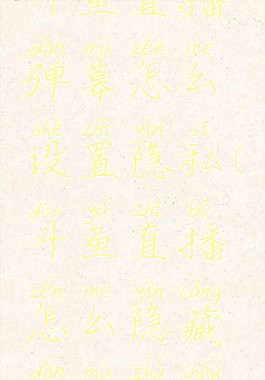 斗鱼直播
dàn mù zěn me
弹幕怎么
shè zhì yǐn sī
设置隐私(
dòu yú zhí bō
斗鱼直播
zěn me yǐn cáng
怎么隐藏
dàn mù zhù shǒu